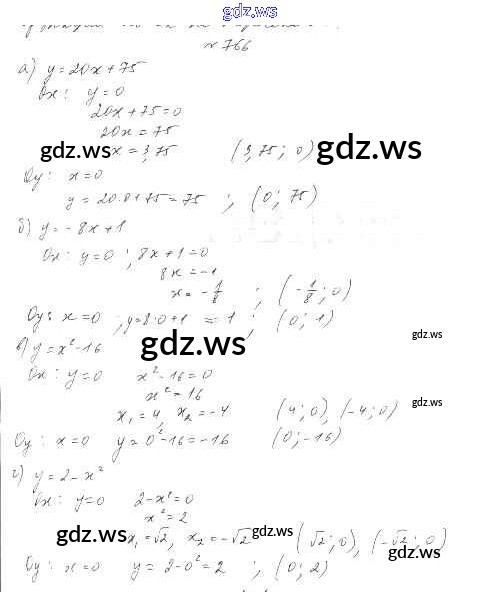 gdz.ws
№766
а) y=20x+75
Ox: y=0
20x+75=0
20x=75
x=3,75 (3,75; 0)
gdz.ws gdz.ws
Oy: x=0
y=20·0+75=75 ; (0; 75)
б) y=-8x+1
Ox: y=0 ; 8x+1=0
8x=-1
x=-1/8 ; (-1/8; 0)
Oy: x=0 ; y=8·0+1 = 1 ; (0; 1)
gdz.ws
в) y=x²-16
gdz.ws
Ox: y=0 x²-16=0
x²=16
gdz.ws
x₁=4, x₂=-4 (4; 0), (-4; 0)
Oy: x=0 y=0²-16=-16 (0; -16)
г) y=2-x²
Ox: y=0 2-x²=0
x²=2
gdz.ws gdz.ws
x₁=√2, x₂=-√2 (√2; 0), (-√2; 0)
gdz.ws
Oy: x=0 y=2-0²=2 ; (0; 2)